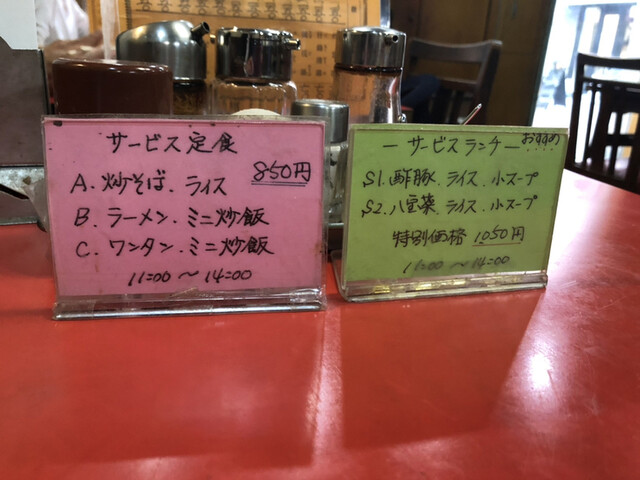 サービス定食
850円
A. 炒そば、ライス
B. ラーメン、ミニ炒飯
C. ワンタン、ミニ炒飯
11:00 〜 14:00
おすすめ
ーサービスランチー
S1. 酢豚、ライス、小スープ
S2. 八宝菜、ライス、小スープ
特別価格 1050円
11:00 〜 14:00